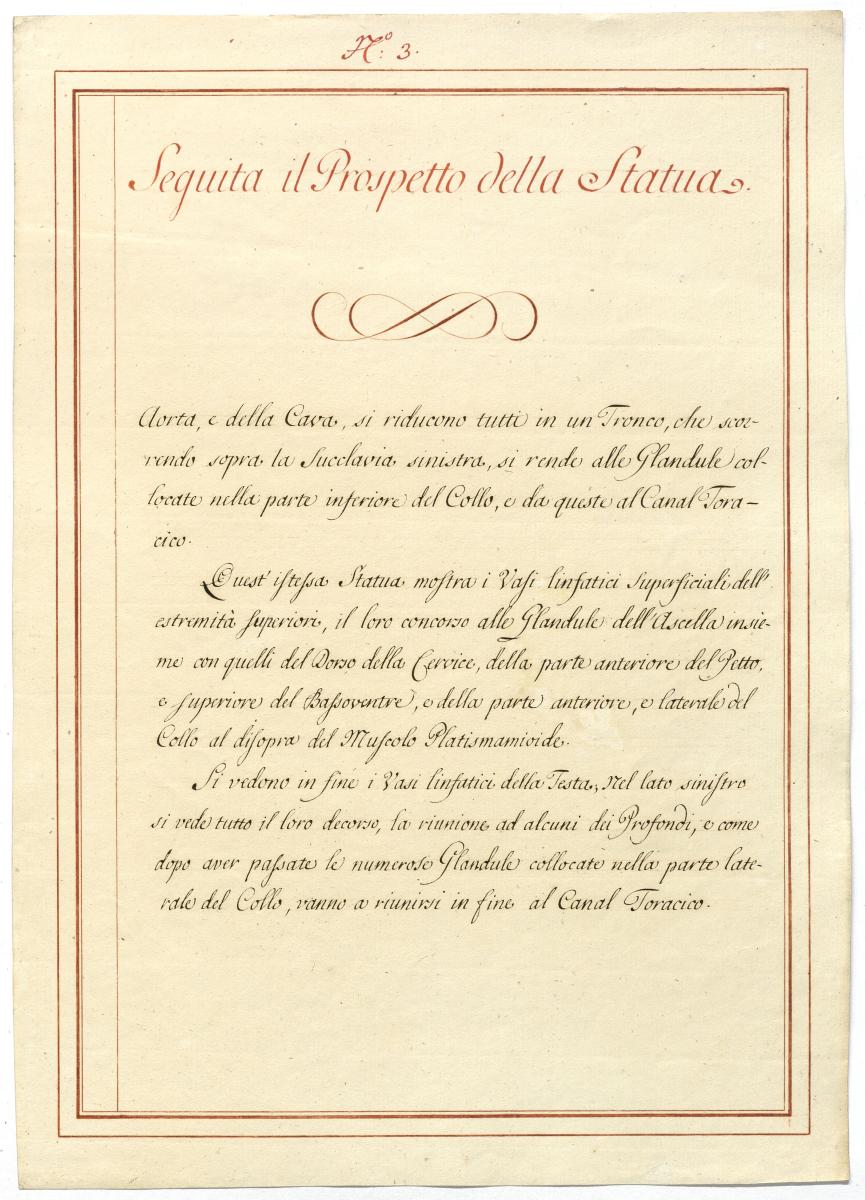 N.º 3.
Seguita il Prospetto della Statua.
Aorta, e della Cava, si riducono tutti in un Tronco, che scor-
rendo sopra la Succlavia sinistra, si rende alle Glandule col-
locate nella parte inferiore del Collo, e da queste al Canal Tora-
cico.
Quest' iſtessa Statua moſtra i Vaſi linfatici superficiali dell'
estremità ſuperiori, il loro concorso alle Glandule dell'Ascella insie-
me con quelli del Dorso della Cervice, della parte anteriore del Petto,
e ſuperiore del Baſsoventre, e della parte anteriore, e laterale del
Collo al diſopra del Muſcolo Platismamioide.
Si vedono in fine i Vasi linfatici della Testa; Nel lato siniſtro
si vede tutto il loro decorso, la riunione ad alcuni dei Profondi, e come
dopo aver paſsate le numerose Glandule collocate nella parte late-
rale del Collo, vanno a riunirsi in fine al Canal Toracico.